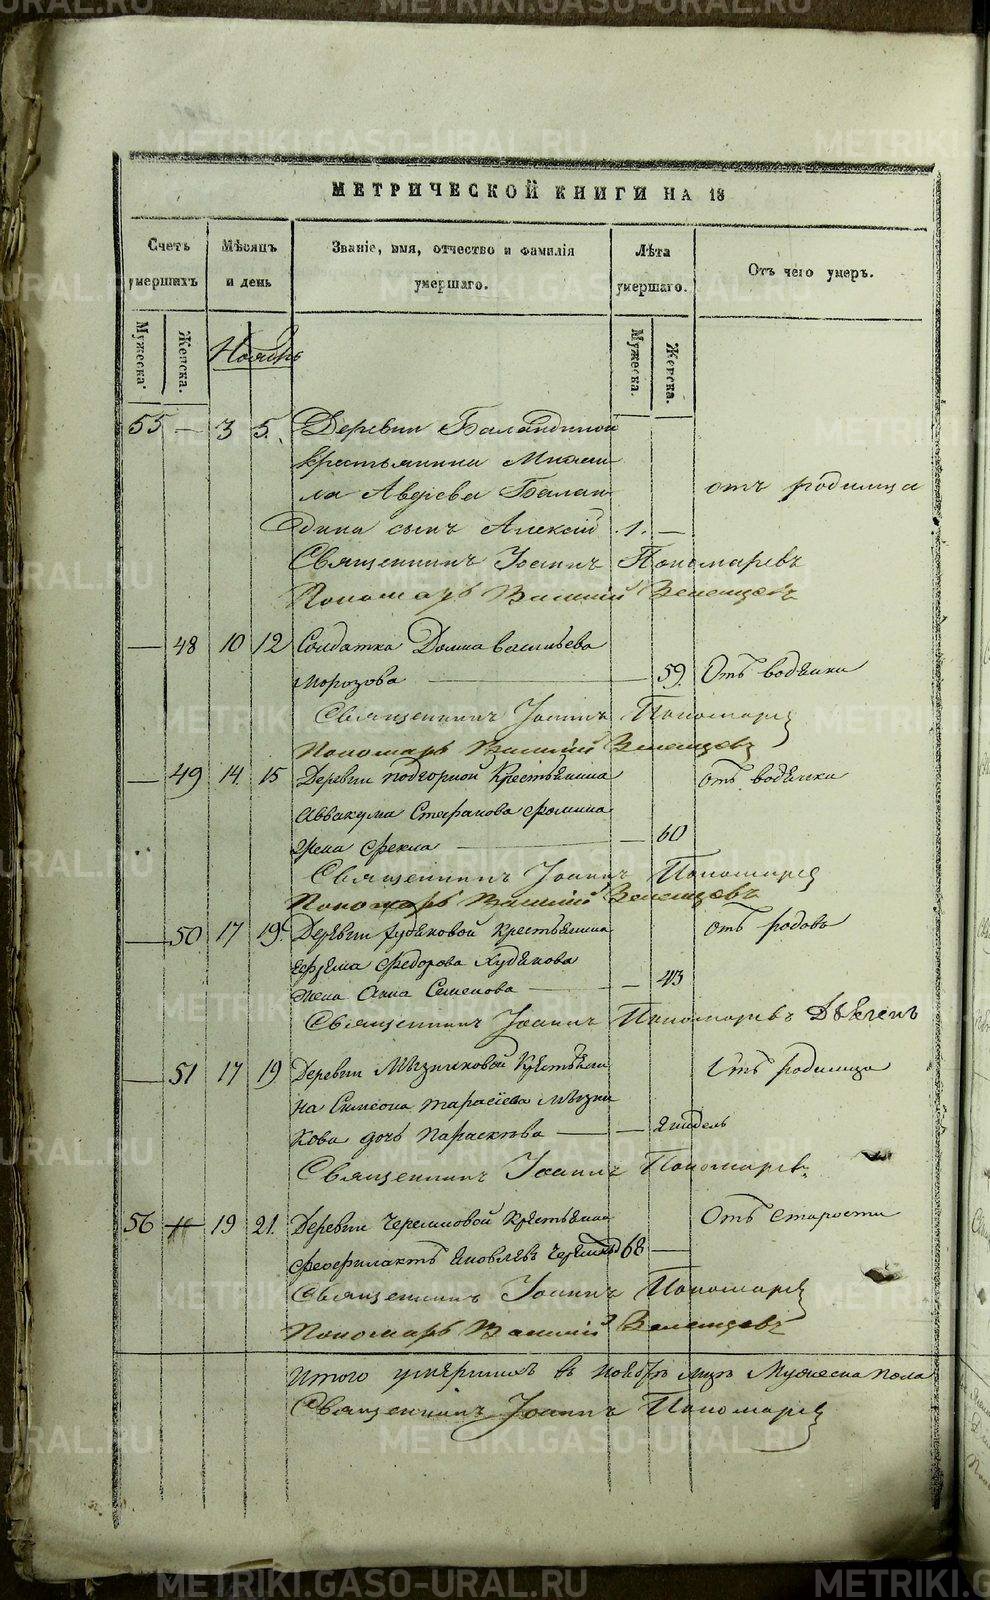 МЕТРИЧЕСКОЙ КНИГИ НА 18
Счетъ умершихъ
Мѣсяцъ и день
Званіе, имя, отчество и фамилія умершаго.
Лѣта умершаго.
Отъ чего умеръ.
Мужеска.
Женска.
Мужеска.
Женска.
Ноябрь
55 — 3 5. Деревни Баландиной
крестьянина
ла Авдѣева Балан- отъ родимца
дина сынъ Алексій 1. —
Священникъ Іоаннъ Пономаревъ
Пономарь Василій
— 48 10 12 Солдатка Домна Васильева
Морозова — 59. Отъ водянки
Священникъ Іоаннъ Пономаревъ
Пономарь Василій
— 49 14. 15 Деревни Подгорной Крестьянина отъ водянки
Аввакума Стефанова Фомина
жена Фекла — 60
Священникъ Іоаннъ Пономаревъ
Пономарь Василій
— 50 17 19. Деревни Худяковой Крестьянина отъ родовъ
Ефрема Федорова Худякова
жена Анна Семенова — 43
Священникъ Іоаннъ Пономаревъ
— 51 17 19 Деревни Мызниковой Крестьяни Отъ родимца
на Симеона Тарасіева Мызни
кова дочь Параскева — недель
Священникъ Іоаннъ Пономаревъ
56 — 19 21. Деревни Черемновой Крестьянин Отъ старости
Феофилактъ Яковлевъ 68 —
Священникъ Іоаннъ Пономаревъ
Пономарь Василій
Итого умершихъ въ ноябрѣ м-цѣ Мужеска пола
Священникъ Іоаннъ Пономаревъ
METRIKI.GASO-URAL.RU